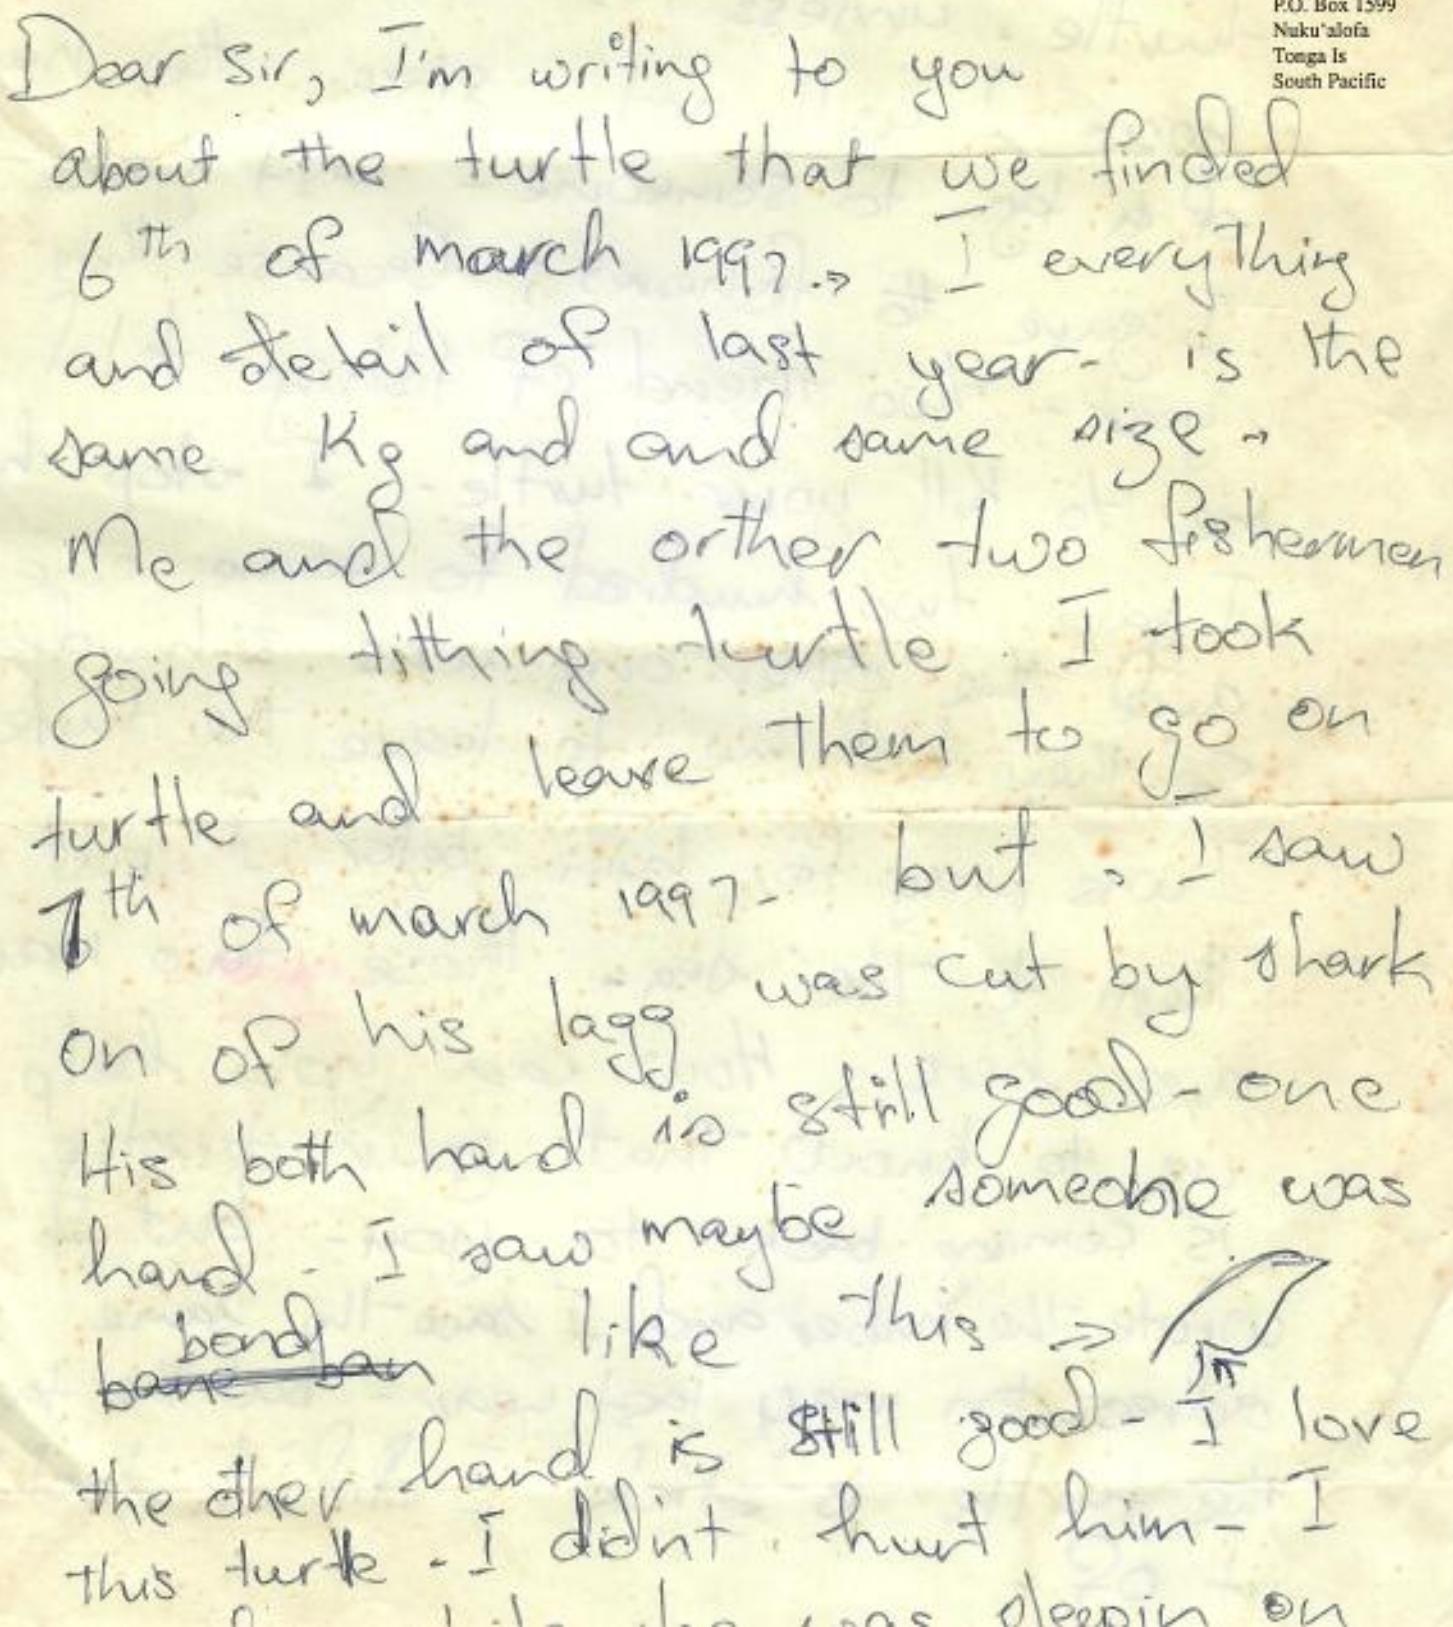 P.O. Box 1599
Nuku'alofa
Tonga Is
South Pacific
Dear Sir, I'm writing to you
about the turtle that we finded
6th of march 1997., I everything
and detail of last year- is the
same Kg and and same size -
Me and the orther two fishermen
going tithing turtle. I took
turtle and leave them to go on
7th of march 1997- but, I saw
on of his lagg was cut by shark
His both hand is still good - one
hand - I saw maybe someone was
bond like this →
the other hand is still good - I love
this turtle - I didn't hurt him - I
was sleepin on